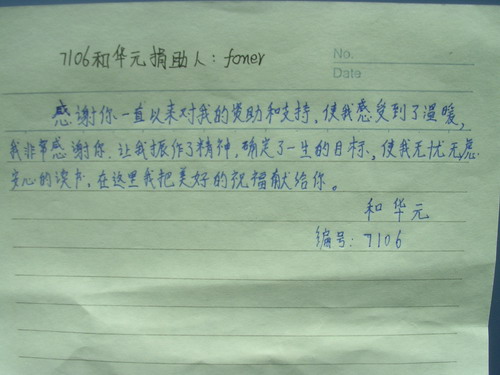 No.
7106和华元捐助人：foner
Date
感谢你一直以来对我的资助和支持，使我感受到了温暖，
我非常感谢你．让我振作了精神，确定了一生的目标，使我无忧无虑
安心的读书，在这里我把美好的祝福献给你。
和华元
编号：7106